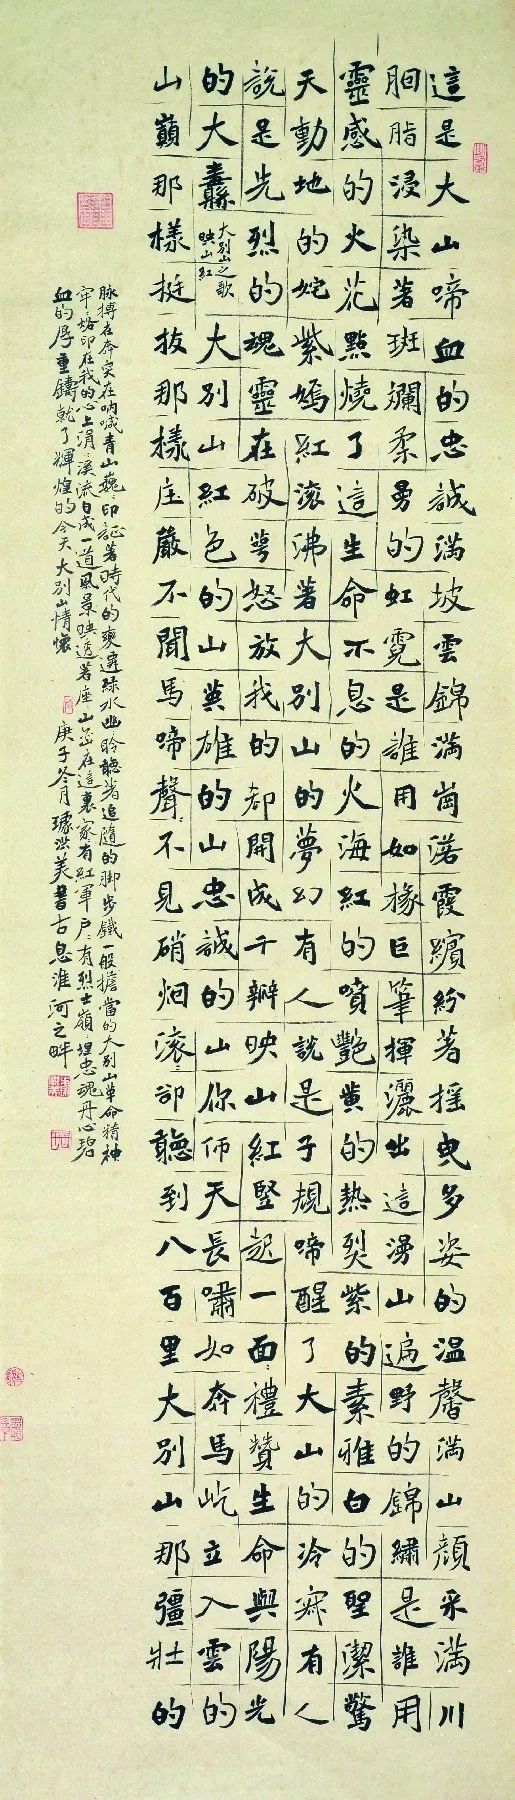 這是大山啼血的忠誠滿坡雲錦滿崗渃霞繽紛著搖曳多姿的温馨滿山顔采滿川
胭脂浸染著斑斕柔勇的虹霓是誰用如椽巨筆揮灑出這湧山遍野的錦繡是誰用
靈感的火花點燒了這生命不息的火海紅的噴艷黄的熱烈紫的素雅白的聖潔驚
天動地的姹紫嫣紅滚沸著大别山的夢幻有人說是子規啼醒了大山的冷寂有人
說是先烈的魂靈在破萼怒放我的都開成千瓣映山紅豎起一面禮贊生命與陽光
的大纛
大别山之歌
映山紅
大别山紅色的山英雄的山忠誠的山你仰天長嘯如奔馬屹立入雲的
山巔那樣挺拔那樣庄嚴不聞馬啼聲不見硝烟滚滚卻聽到八百里大别山那彊壯的
脉搏在奔突在吶喊青山巍印証著時代的變遷綠水幽聆聽著追隨的脚步鐵一般擔當的大别山革命精神
牢烙印在我的心上涓溪流自成一道風景映透著座山岳在這裏家有紅軍户有烈士嶺埋忠魂丹心碧
血的厚重鑄就了輝煌的今天大别山情懷
庚子冬月璩洪美書古息淮河之畔